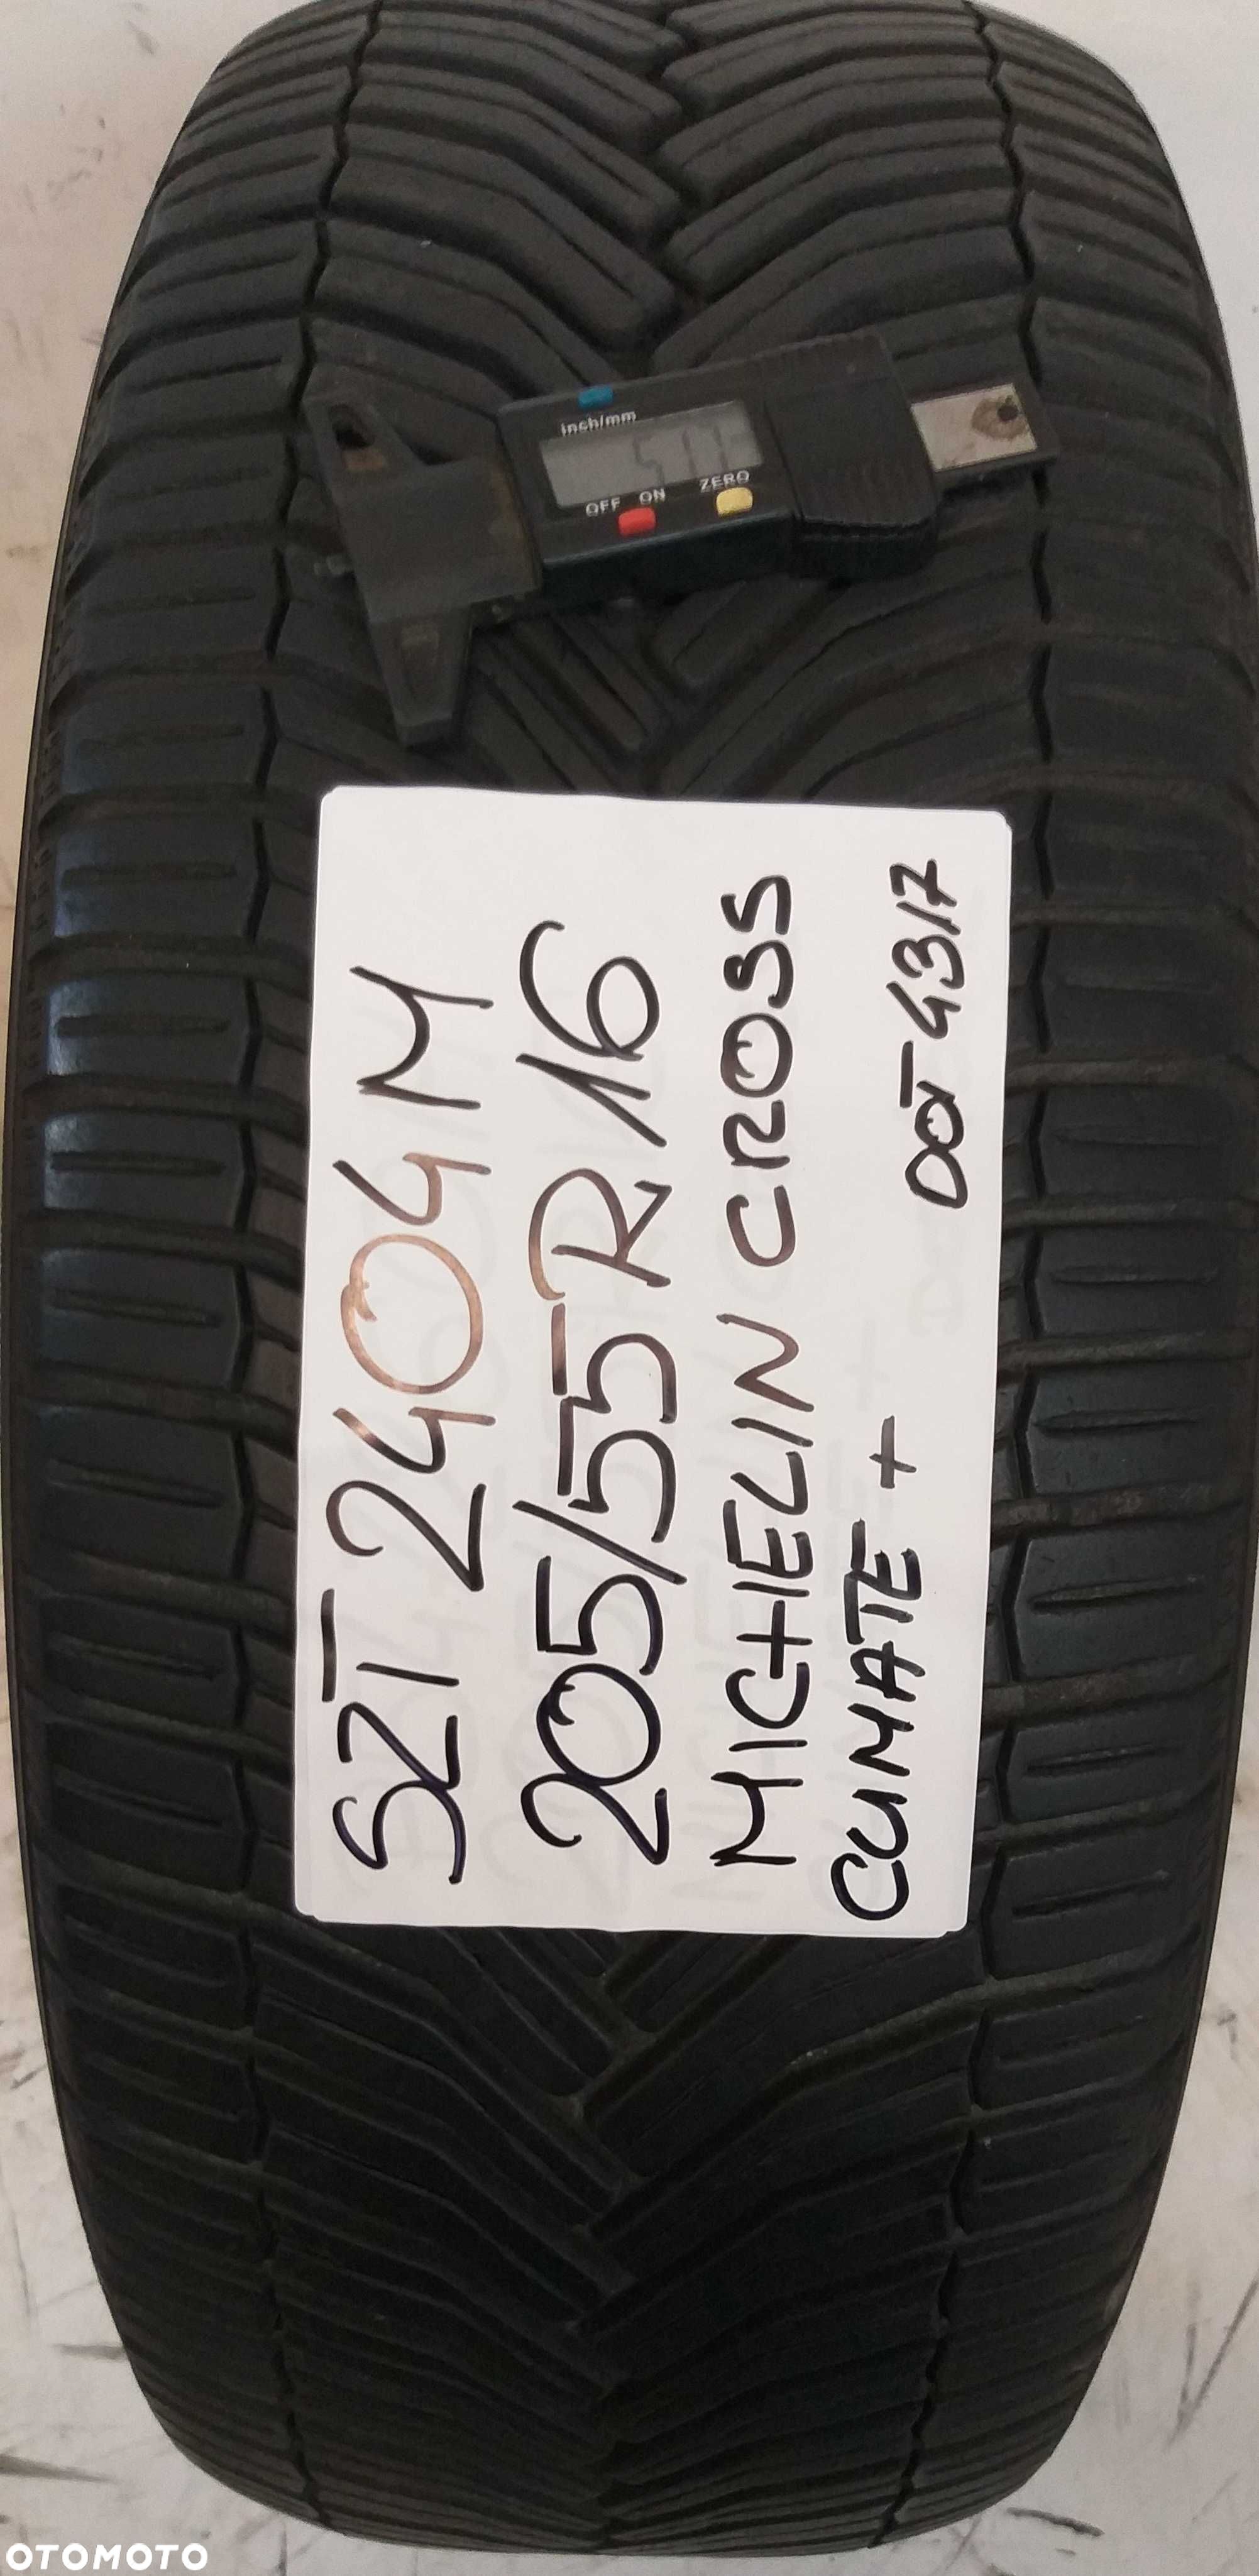 inch/mm
OFF ON ZERO
SZT 2404M
205/55R16
MICHELIN CROSS
CLIMATE +
DOT 4317
OTOMOTO